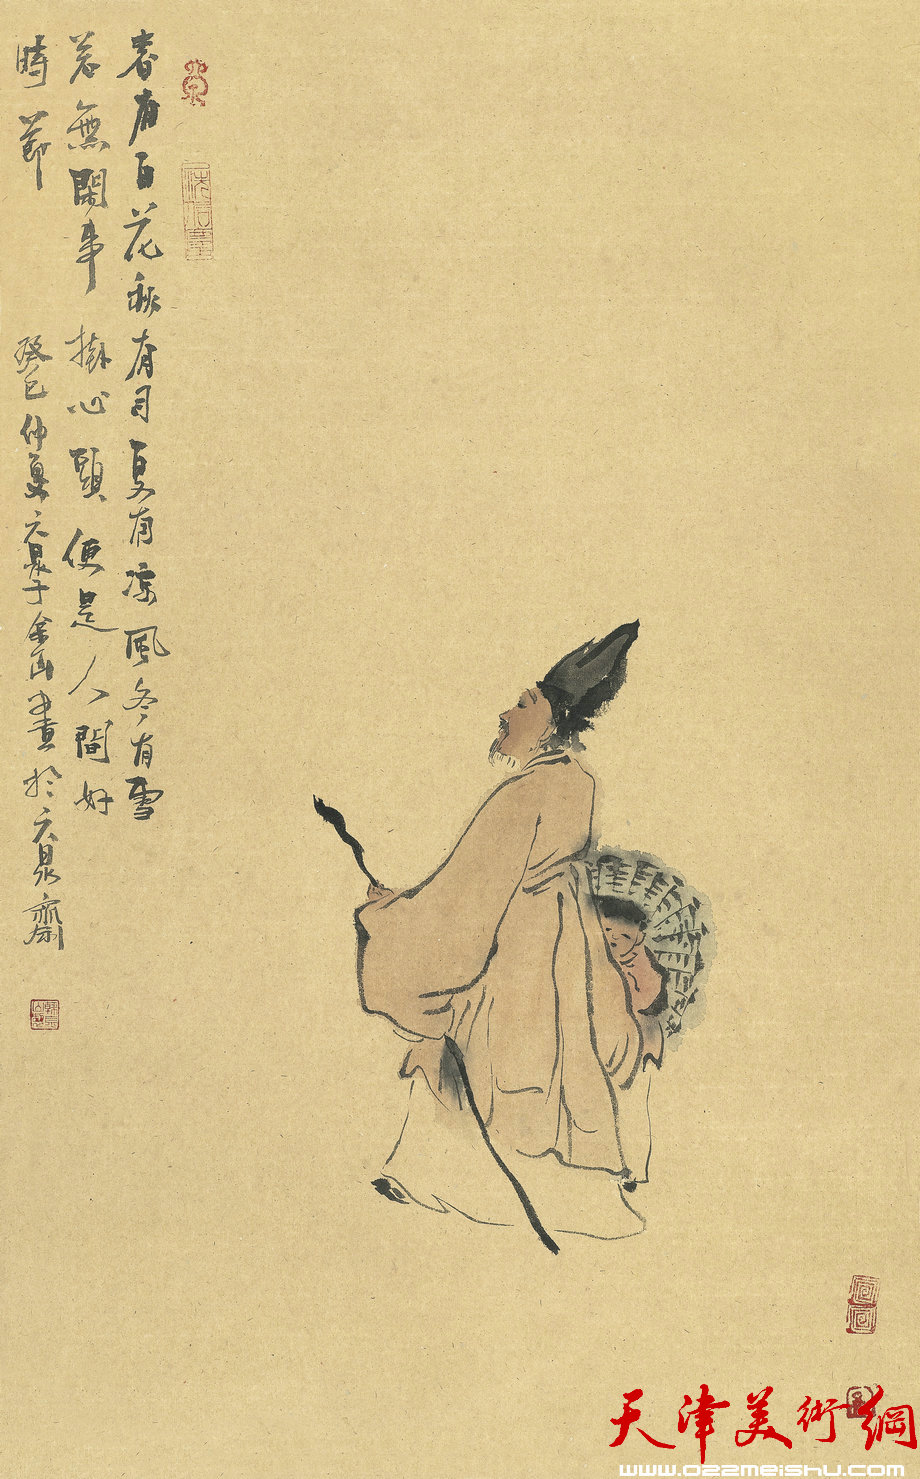 春有百花秋有月夏有凉風冬有雪
若無閑事掛心頭便是人間好
時節
癸巳仲夏泉子山畫於泉齋
天津美術網
www.022meishu.com